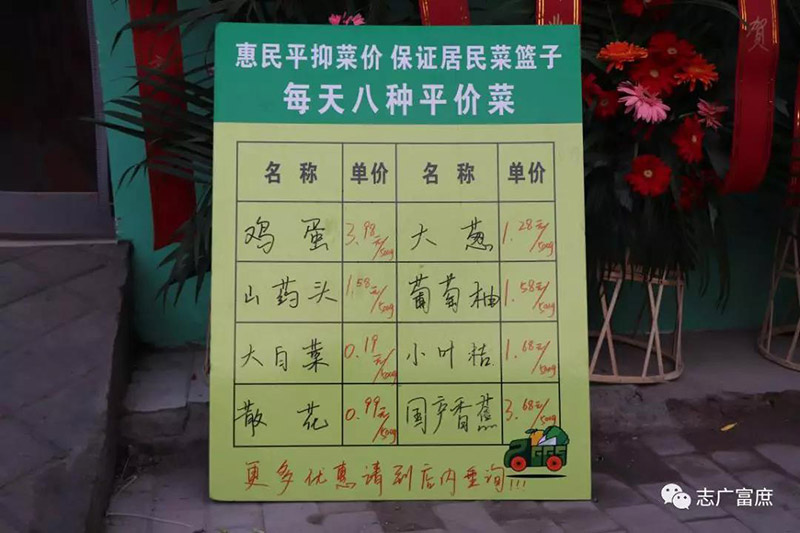 惠民平抑菜价 保证居民菜篮子
每天八种平价菜
名称 单价 名称 单价
鸡蛋 3.98元/500g 大葱 1.28元/500g
山药头 1.58元/500g 葡萄柚 1.58元/500g
大白菜 0.19元/500g 小叶桔 1.68元/500g
散花 0.99元/500g 国产香蕉 3.68元/500g
更多优惠请到店内垂询!!!
贺
志广富庶